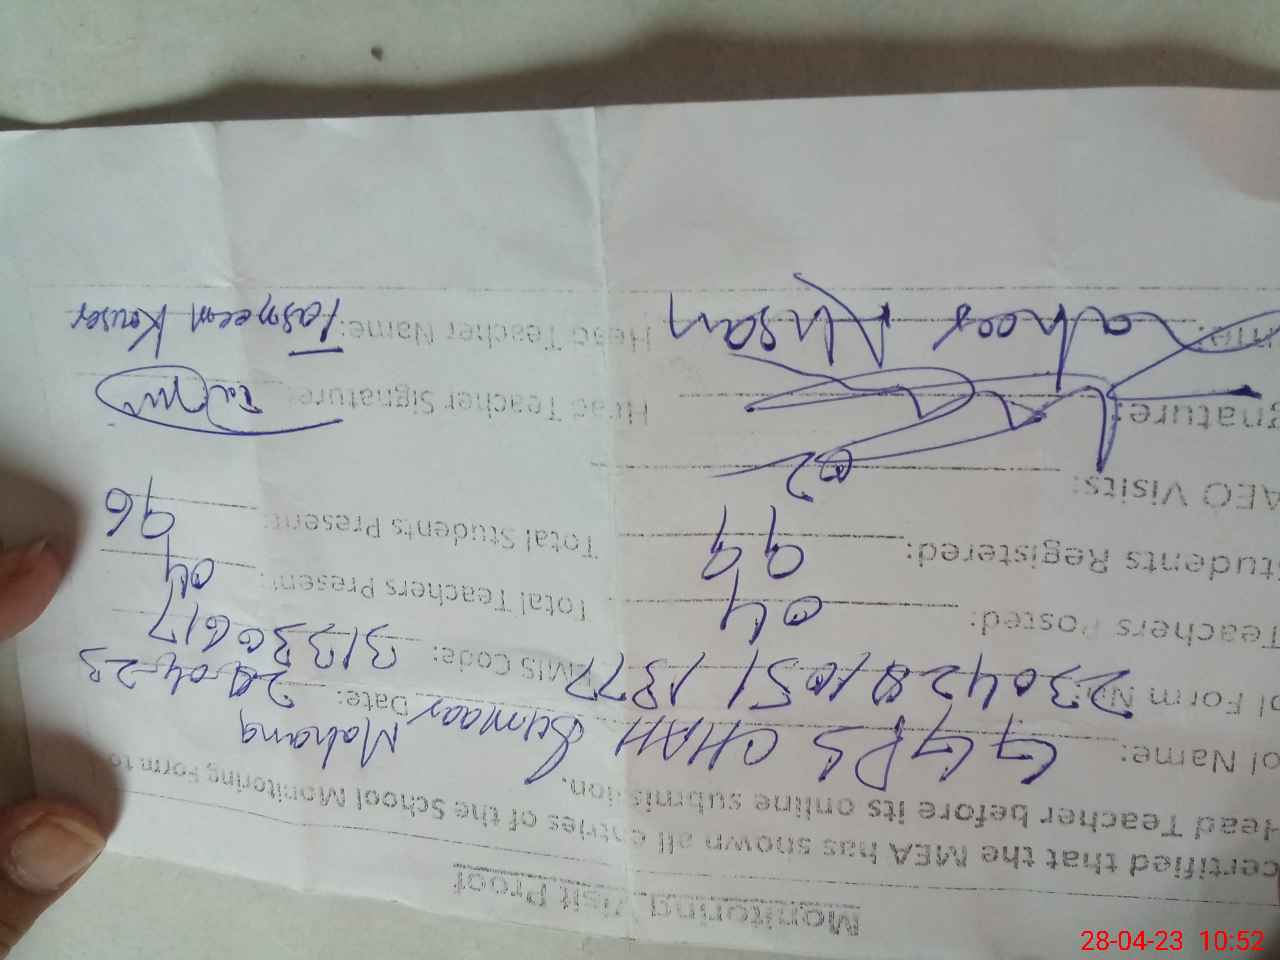 Monitoring Visit Proof
certified that the MEA has shown all entries of the School Monitoring Form to
Head Teacher before its online submission.
ol Name: GGPS CHAH Mahang
ol Form No: 23042810511377 Date: 28-04-23
Teachers Posted: 04 EMIS Code: 31330617
Students Registered: 99 Total Teachers Present: 04
AEO Visits: 02 Total Students Present: 96
gnature: Head Teacher Signature:
me: Ahsan Head Teacher Name: Tasneem Kouser
28-04-23 10:52